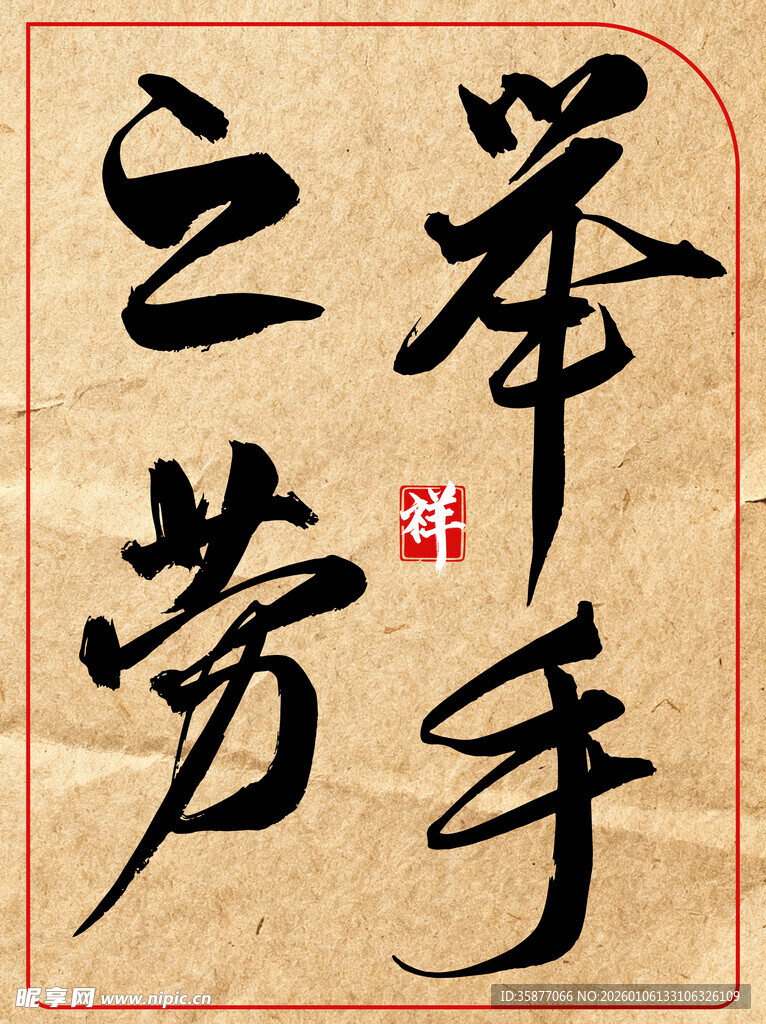 举手
之劳
祥
昵享网 www.nipic.cn
ID:35877066 NO:20260106133106326109